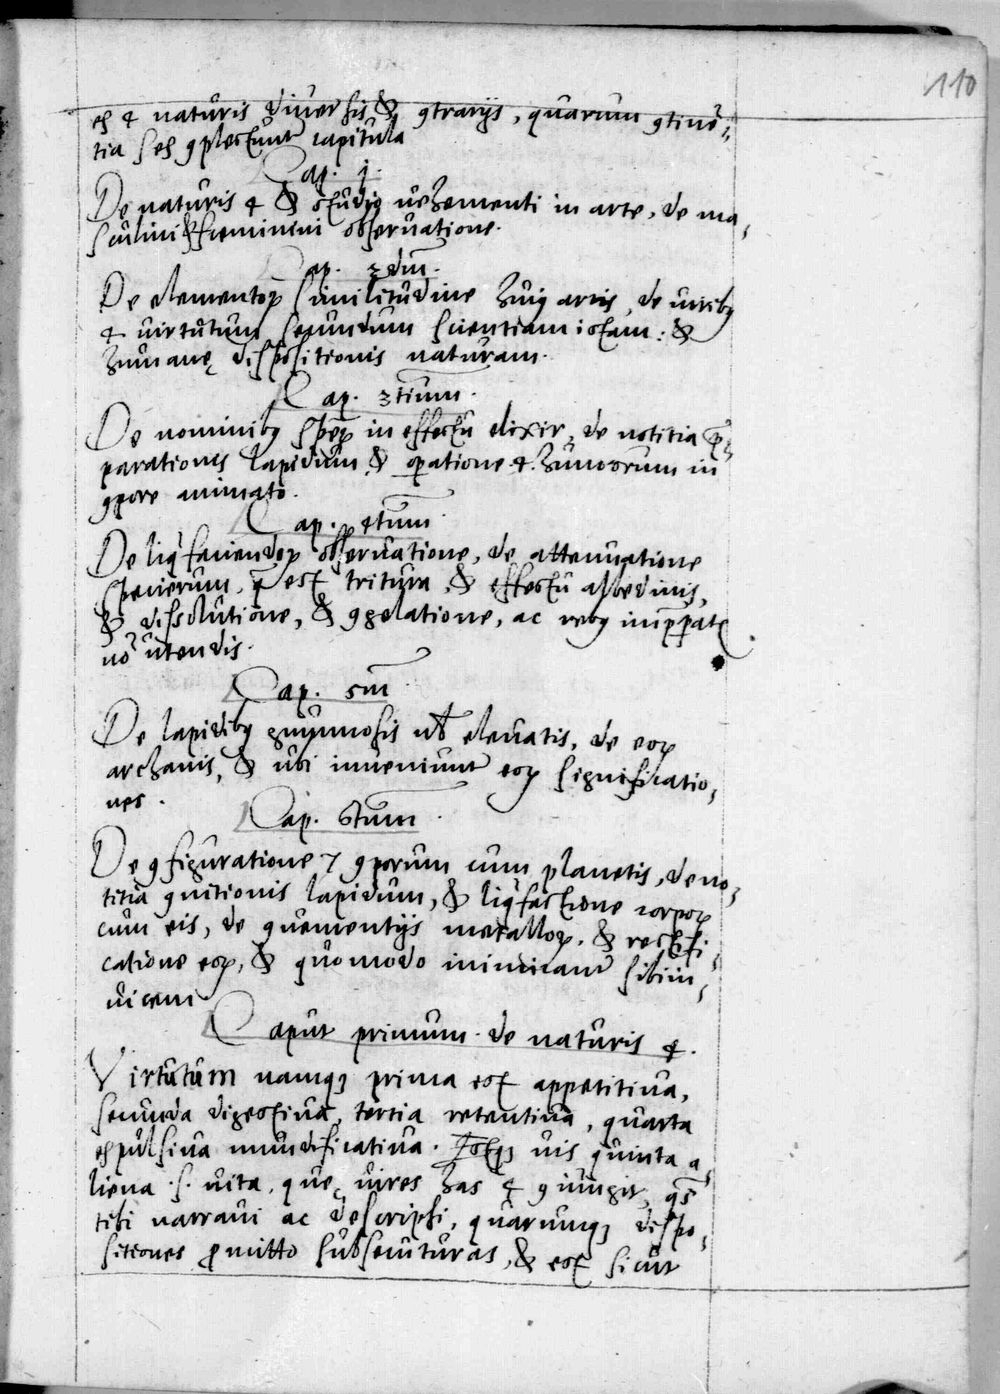 110
ex 4 naturis diuersis & ꝯtrarijs, quarum ꝯtinē⸗
tia sex ꝯplectunt capitula
Cap. j.
De naturis 4 & studio uehementi in arte, de ma⸗
sculini & foeminini obseruatione.
Cap. 2dm̄.
De elementoꝝ similitudine huiꝰ artis, de uiribꝰ
4 uirtutum secundum scientiam istam: &
humanę dispositionis naturam.
Cap. 3tium.
De nominibꝰ speꝝ in effectu elixir, de notitia p̄⸗
parationis lapidum & oꝑatione 4. humorum in
ꝯpore animato.
Cap. 4tum.
De liq̄faciendoꝝ obseruatione, de attenuatione
specierum, q̄ est tritura, & effectu albedinis,
& dissolutione, & ꝯgelatione, ac rebꝰ imp̄parat
nō utendis.
Cap. 5m̄
De lapidibꝰ gummosis elevatis, de eoꝝ
archanis, & ubi inueniunt eoꝝ significatio⸗
nes.
Cap. 6tum.
De ꝯfiguratione 7 ꝯporum cum planetis, de no⸗
titia lapidum, & liq̄factione corpoꝝ
cum eis, de ꝯuenientijs metalloꝝ, & rectifi⸗
catione eoꝝ, & quomodo inimicant sibiin⸗
uicem
Caput primum de naturis 4.
Virtutum namqꝫ prima est appetitiua,
secunda digestiua, tertia retentiua, quarta
expulsiua mundificatiua. Estqꝫ uis quinta a⸗
liena .s. uita, quę uires has 4 ꝯiungit, qs̄
tibi narraui ac descripsi, quarumqꝫ dispo⸗
sitiones ꝓmitto subsecuturas, & est sicut